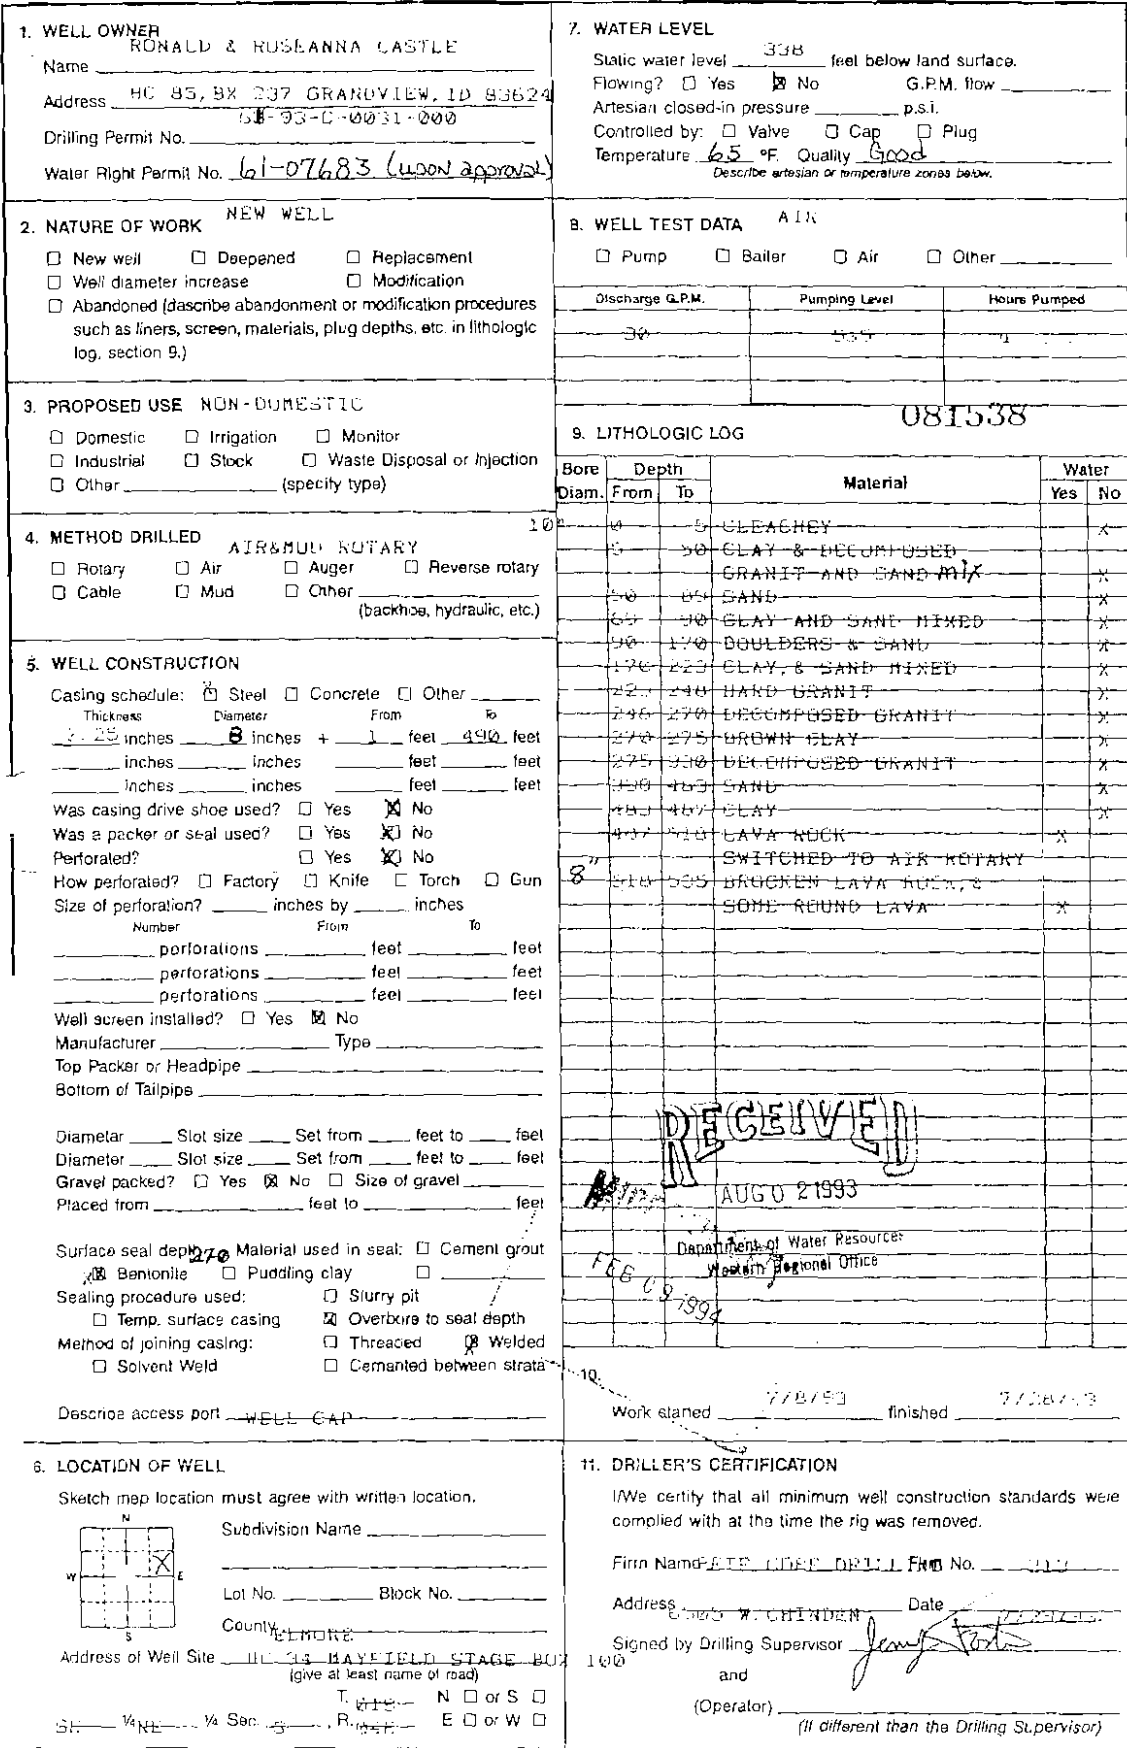 1. WELL OWNER
RONALD & ROSEANNA CASTLE
Name
Address HC 85, BX 237 GRANDVIEW, ID 83624
-93-C-0031-000
Drilling Permit No.
Water Right Permit No. 61-07683 (upon approval)
2. NATURE OF WORK NEW WELL
New well Deepened Replacement
Well diameter increase Modification
Abandoned (describe abandonment or modification procedures
such as liners, screen, materials, plug depths, etc. in lithologic
log, section 9.)
3. PROPOSED USE NON-DOMESTIC
Domestic Irrigation Monitor
Industrial Stock Waste Disposal or Injection
Other (specify type)
4. METHOD DRILLED
AIR&MUD ROTARY
Rotary Air Auger Reverse rotary
Cable Mud Other
(backhoe, hydraulic, etc.)
5. WELL CONSTRUCTION
Casing schedule: Steel Concrete Other
Thickness Diameter From To
inches 8 inches + 1 feet 490 feet
inches inches feet feet
inches inches feet feet
Was casing drive shoe used? Yes X No
Was a packer or seal used? Yes X No
Perforated? Yes X No
How perforated? Factory Knife Torch Gun
Size of perforation? inches by inches
Number From To
perforations feet feet
perforations feet feet
perforations feet feet
Well screen installed? Yes X No
Manufacturer Type
Top Packer or Headpipe
Bottom of Tailpipe
Diameter Slot size Set from feet to feet
Diameter Slot size Set from feet to feet
Gravel packed? Yes X No Size of gravel
Placed from feet to feet
Surface seal depth 270 Material used in seal: Cement grout
X Bentonite Puddling clay
Sealing procedure used: Slurry pit
Temp. surface casing X Overbore to seal depth
Method of joining casing: Threaded X Welded
Solvent Weld Cemented between strata
Describe access port WELL CAP
6. LOCATION OF WELL
Sketch map location must agree with written location.
N
W X E
S
Subdivision Name
Lot No. Block No.
County ELMORE
Address of Well Site HC 34 MAYFIELD STAGE BOX 100
(give at least name of road)
T. N or S
¼ NE ¼ Sec. , R. E or W
7. WATER LEVEL
Static water level 338 feet below land surface.
Flowing? Yes X No G.P.M. flow
Artesian closed-in pressure p.s.i.
Controlled by: Valve Cap Plug
Temperature 65 °F. Quality Good
Describe artesian or temperature zones below.
8. WELL TEST DATA AIR
Pump Bailer Air Other
Discharge G.P.M. Pumping Level Hours Pumped
30
081538
9. LITHOLOGIC LOG
Bore Diam. Depth From To Material Water Yes No
10" 0 5 CLEACHEY X
5 50 CLAY & DECOMPOSED
GRANIT AND SAND mix X
SAND X
90 CLAY AND SAND MIXED X
90 170 BOULDERS & SAND X
CLAY, & SAND MIXED X
240 HARD GRANIT X
270 DECOMPOSED GRANIT X
270 275 BROWN CLAY X
275 330 DECOMPOSED GRANIT X
SAND X
CLAY X
LAVA ROCK X
SWITCHED TO AIR ROTARY
8" BROCKEN LAVA ROCK, &
SOME ROUND LAVA X
RECEIVED
AUG 02 1993
Department of Water Resources
Western Regional Office
FEB 09 1994
10.
Work started 7/8/93 finished
11. DRILLER'S CERTIFICATION
I/We certify that all minimum well construction standards were
complied with at the time the rig was removed.
Firm Name Firm No.
Address W. CHINDEN Date
Signed by Drilling Supervisor
and
(Operator)
(If different than the Drilling Supervisor)